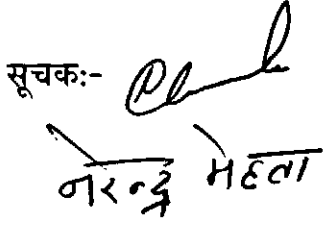 सूचकः-
नरेन्द्र मेहता